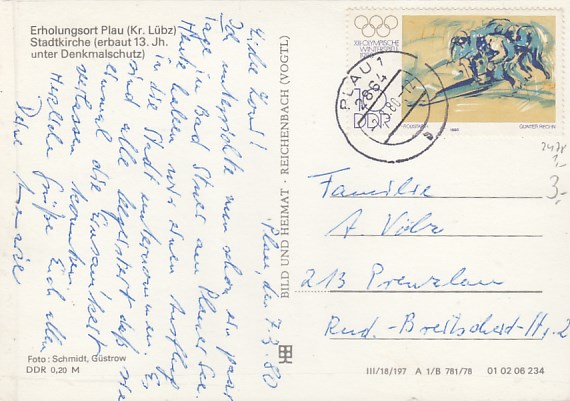 Erholungsort Plau (Kr. Lübz)
Stadtkirche (erbaut 13. Jh.
unter Denkmalschutz)
Plau, den 7.3.80
Ich
nun schon ein paar
Tage in Bad Stuer am Plauer See.
Heute haben wir einen Ausflug
in die Stadt unternommen. Es
sind alle begeistert daß wir
einmal die Einsamkeit
verlassen konnten.
Herzliche Grüße Euch allen
Foto: Schmidt, Güstrow
DDR 0,20 M
BILD UND HEIMAT · REICHENBACH (VOGTL)
XIII. OLYMPISCHE
WINTERSPIELE
DDR
GÜNTER RECHN
PLAU 1
2864
3.-
Familie
A.
213 Prenzlau
Rud.-Breitscheid-Str. 2
III/18/197 A 1/B 781/78 01 02 06 234